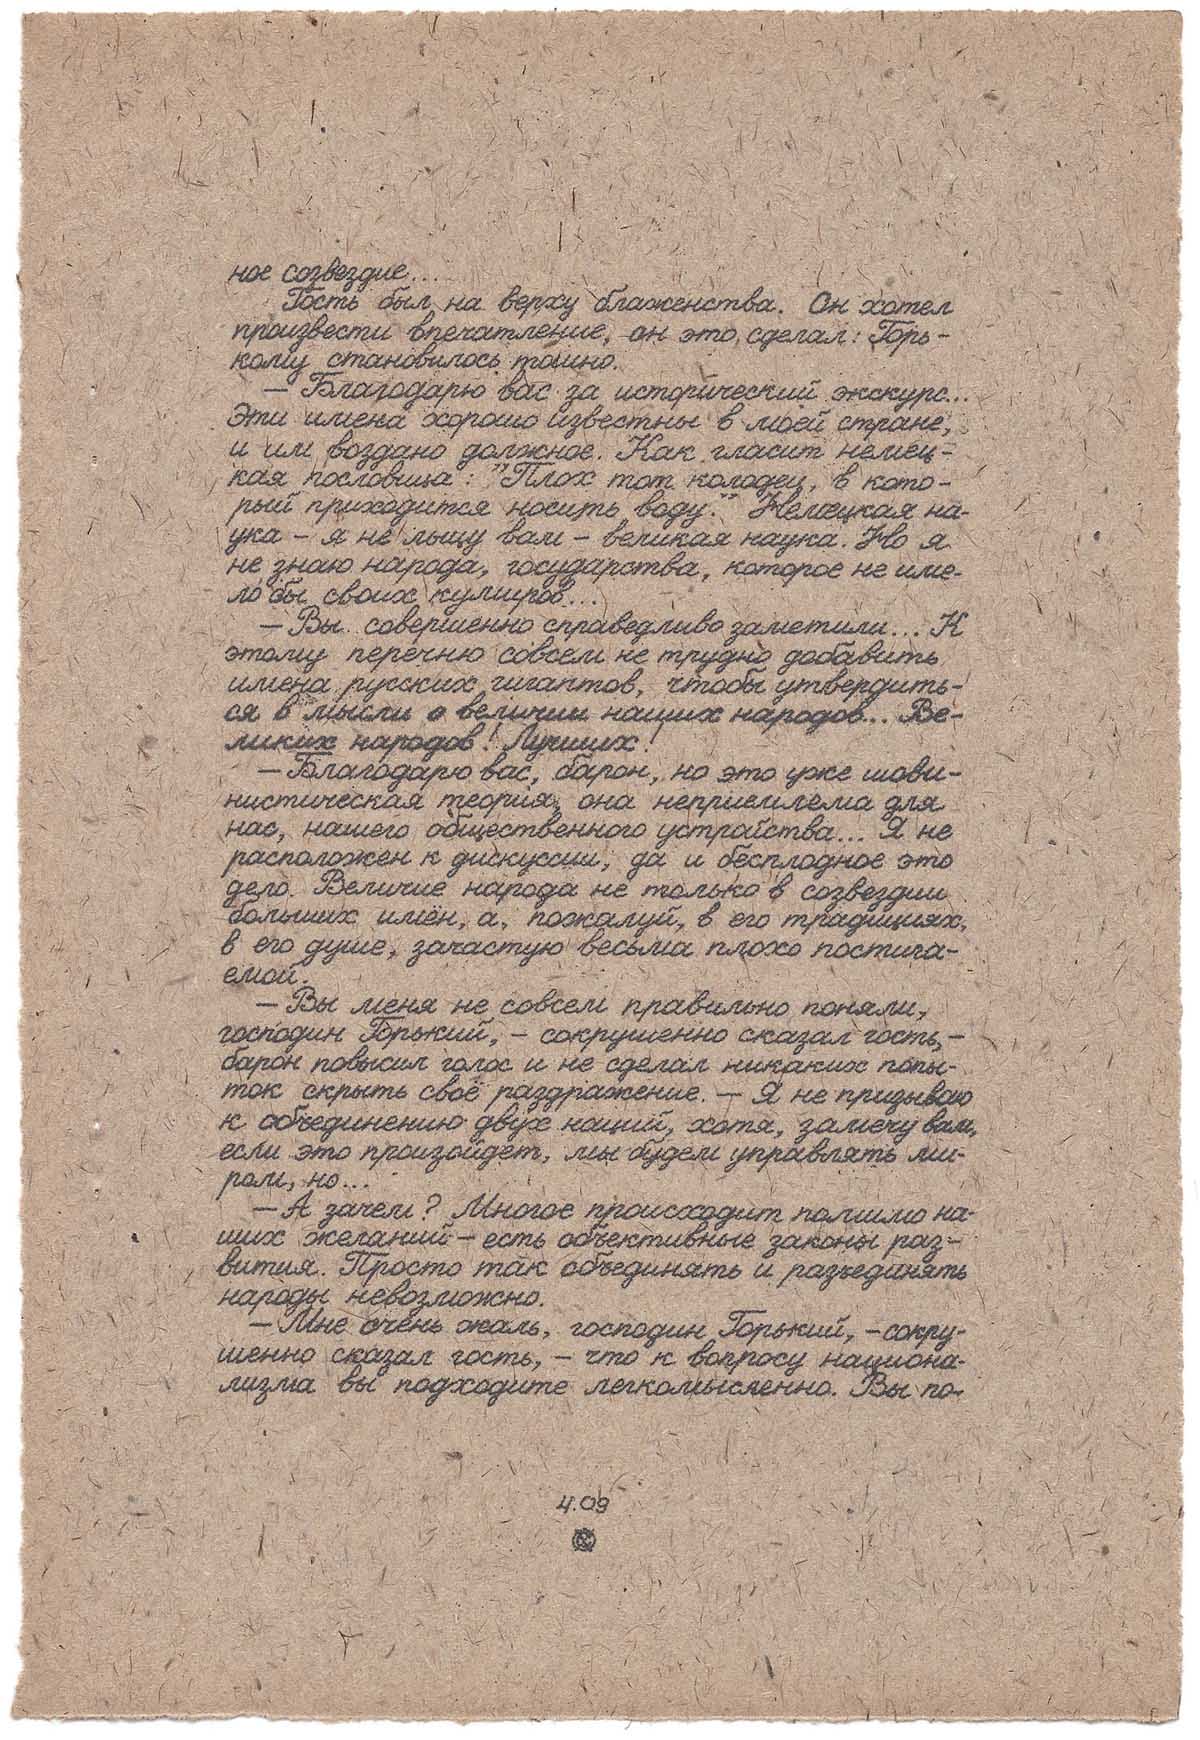 ное созвездие...
Гость был на верху блаженства. Он хотел
произвести впечатление, он это сделал: Горь-
кому становилось тошно.
— Благодарю вас за исторический экскурс...
Эти имена хорошо известны в моей стране,
и им воздано должное. Как гласит немец-
кая пословица: "Плох тот колодец, в кото-
рый приходится носить воду." Немецкая на-
ука – я не льщу вам – великая наука. Но я
не знаю народа, государства, которое не име-
ло бы своих кумиров...
— Вы совершенно справедливо заметили... К
этому перечню совсем не трудно добавить
имена русских гигантов, чтобы утвердить-
ся в мысли о величии наших народов... Ве-
ликих народов! Лучших!
— Благодарю вас, барон, но это уже шови-
нистическая теория, она неприемлема для
нас, нашего общественного устройства... Я не
расположен к дискуссии, да и бесплодное это
дело. Величие народа не только в созвездии
больших имён, а, пожалуй, в его традициях,
в его душе, зачастую весьма плохо постига-
емой.
— Вы меня не совсем правильно поняли,
господин Горький, – сокрушенно сказал гость, –
барон повысил голос и не сделал никаких попы-
ток скрыть своё раздражение. — Я не призываю
к объединению двух наций, хотя, замечу вам,
если это произойдет, мы будем управлять ми-
ром, но...
— А зачем? Многое происходит помимо на-
ших желаний – есть объективные законы раз-
вития. Просто так объединять и разъединять
народы невозможно.
— Мне очень жаль, господин Горький, – сокру-
шенно сказал гость, – что к вопросу национа-
лизма вы подходите легкомысленно. Вы по-
4.09